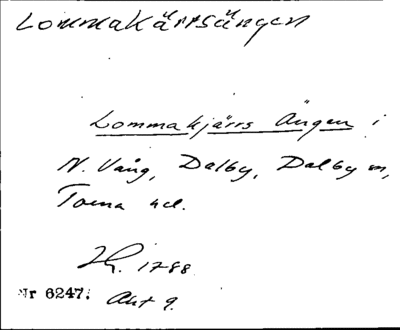 Lommakärrsängen
Lommakjärrs Ängen i
N. Vång, Dalby, Dalby sn,
Torna hd.
1788
Nr 6247. Akt 9.